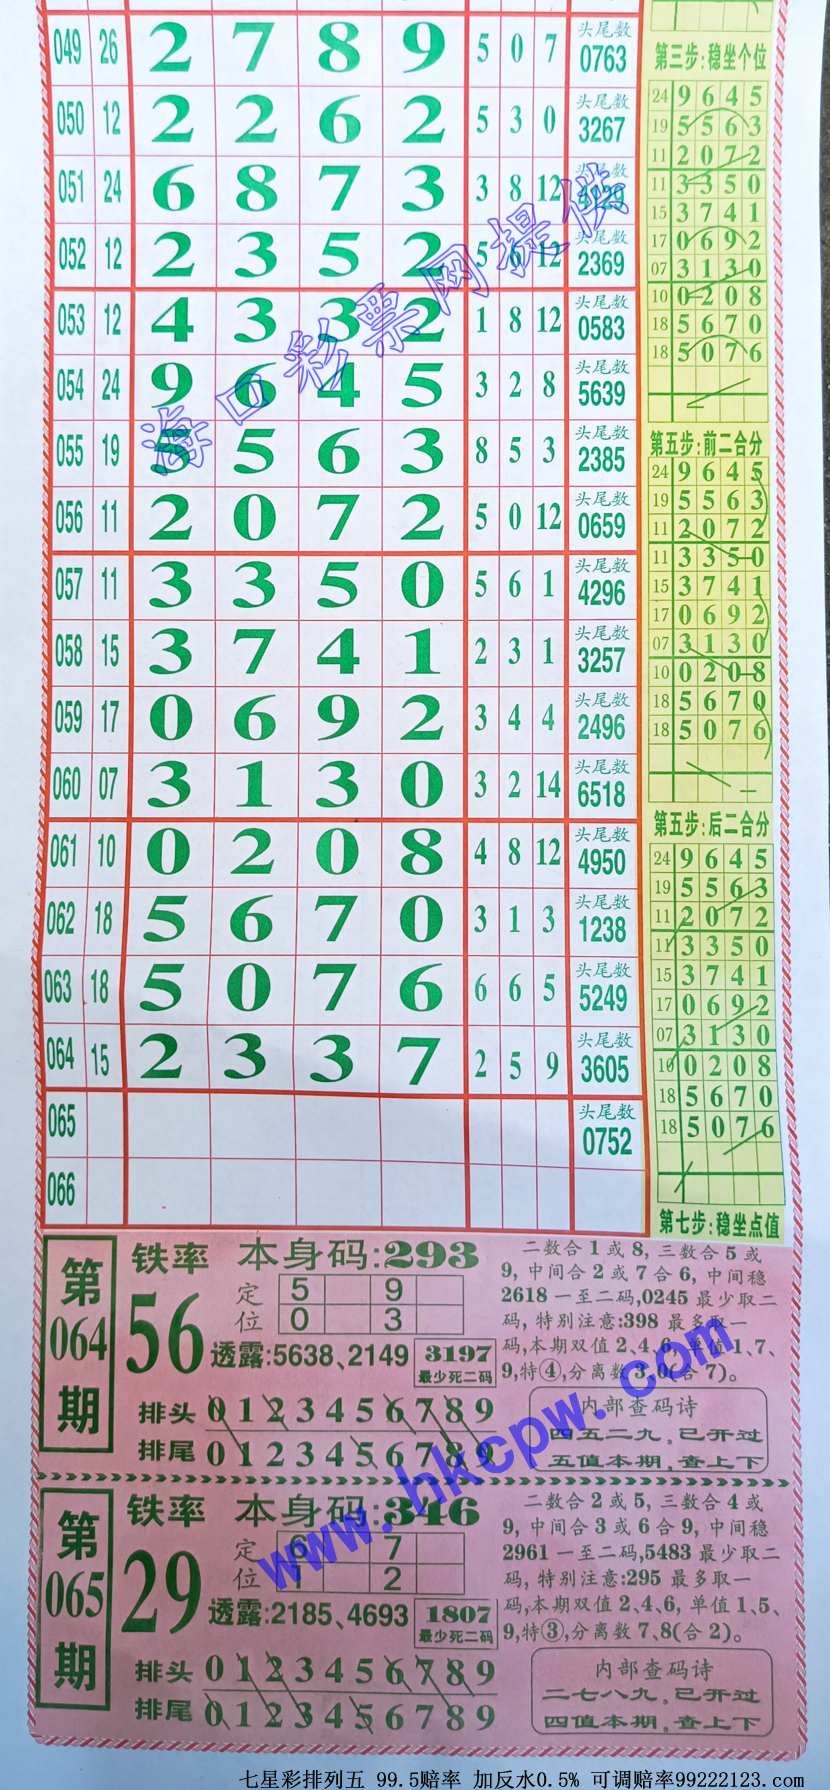 049 26 2 7 8 9 5 0 7 头尾数 0763
050 12 2 2 6 2 5 3 0 头尾数 3267
051 24 6 8 7 3 3 8 12 头尾数
052 12 2 3 5 2 5 6 12 头尾数 2369
053 12 4 3 3 2 1 8 12 头尾数 0583
054 24 9 6 4 5 3 2 8 头尾数 5639
055 19 5 5 6 3 8 5 3 头尾数 2385
056 11 2 0 7 2 5 0 12 头尾数 0659
057 11 3 3 5 0 5 6 1 头尾数 4296
058 15 3 7 4 1 2 3 1 头尾数 3257
059 17 0 6 9 2 3 4 4 头尾数 2496
060 07 3 1 3 0 3 2 14 头尾数 6518
061 10 0 2 0 8 4 8 12 头尾数 4950
062 18 5 6 7 0 3 1 3 头尾数 1238
063 18 5 0 7 6 6 6 5 头尾数 5249
064 15 2 3 3 7 2 5 9 头尾数 3605
065 头尾数 0752
066
第三步:稳坐个位
24 9 6 4 5
19 5 5 6 3
11 2 0 7 2
11 3 3 5 0
15 3 7 4 1
17 0 6 9 2
07 3 1 3 0
10 0 2 0 8
18 5 6 7 0
18 5 0 7 6
第五步:前二合分
24 9 6 4 5
19 5 5 6 3
11 2 0 7 2
11 3 3 5 0
15 3 7 4 1
17 0 6 9 2
07 3 1 3 0
10 0 2 0 8
18 5 6 7 0
18 5 0 7 6
第五步:后二合分
24 9 6 4 5
19 5 5 6 3
11 2 0 7 2
11 3 3 5 0
15 3 7 4 1
17 0 6 9 2
07 3 1 3 0
10 0 2 0 8
18 5 6 7 0
18 5 0 7 6
第七步:稳坐点值
海口彩票网提供
第064期
铁率 56
本身码:293
定位 5 9
0 3
透露:5638、2149
3197
最少死二码
排头 0 1 2 3 4 5 6 7 8 9
排尾 0 1 2 3 4 5 6 7 8 9
二数合1或8,三数合5或
9,中间合2或7合6,中间稳
2618一至二码,0245最少取二
码,特别注意:398最多取一
码,本期双值2、4、6,单值1、7、
9,特④,分离数3、0(合7)。
内部查码诗
四五二九,已开过
五值本期,查上下
第065期
铁率 29
本身码:346
定位 6 7
1 2
透露:2185、4693
1807
最少死二码
排头 0 1 2 3 4 5 6 7 8 9
排尾 0 1 2 3 4 5 6 7 8 9
二数合2或5,三数合4或
9,中间合3或6合9,中间稳
2961一至二码,5483最少取二
码,特别注意:295最多取一
码,本期双值2、4、6,单值1、5、
9,特③,分离数7、8(合2)。
内部查码诗
二七八九,已开过
四值本期,查上下
www.hkcpw.com
七星彩排列五 99.5赔率 加反水0.5% 可调赔率99222123.com